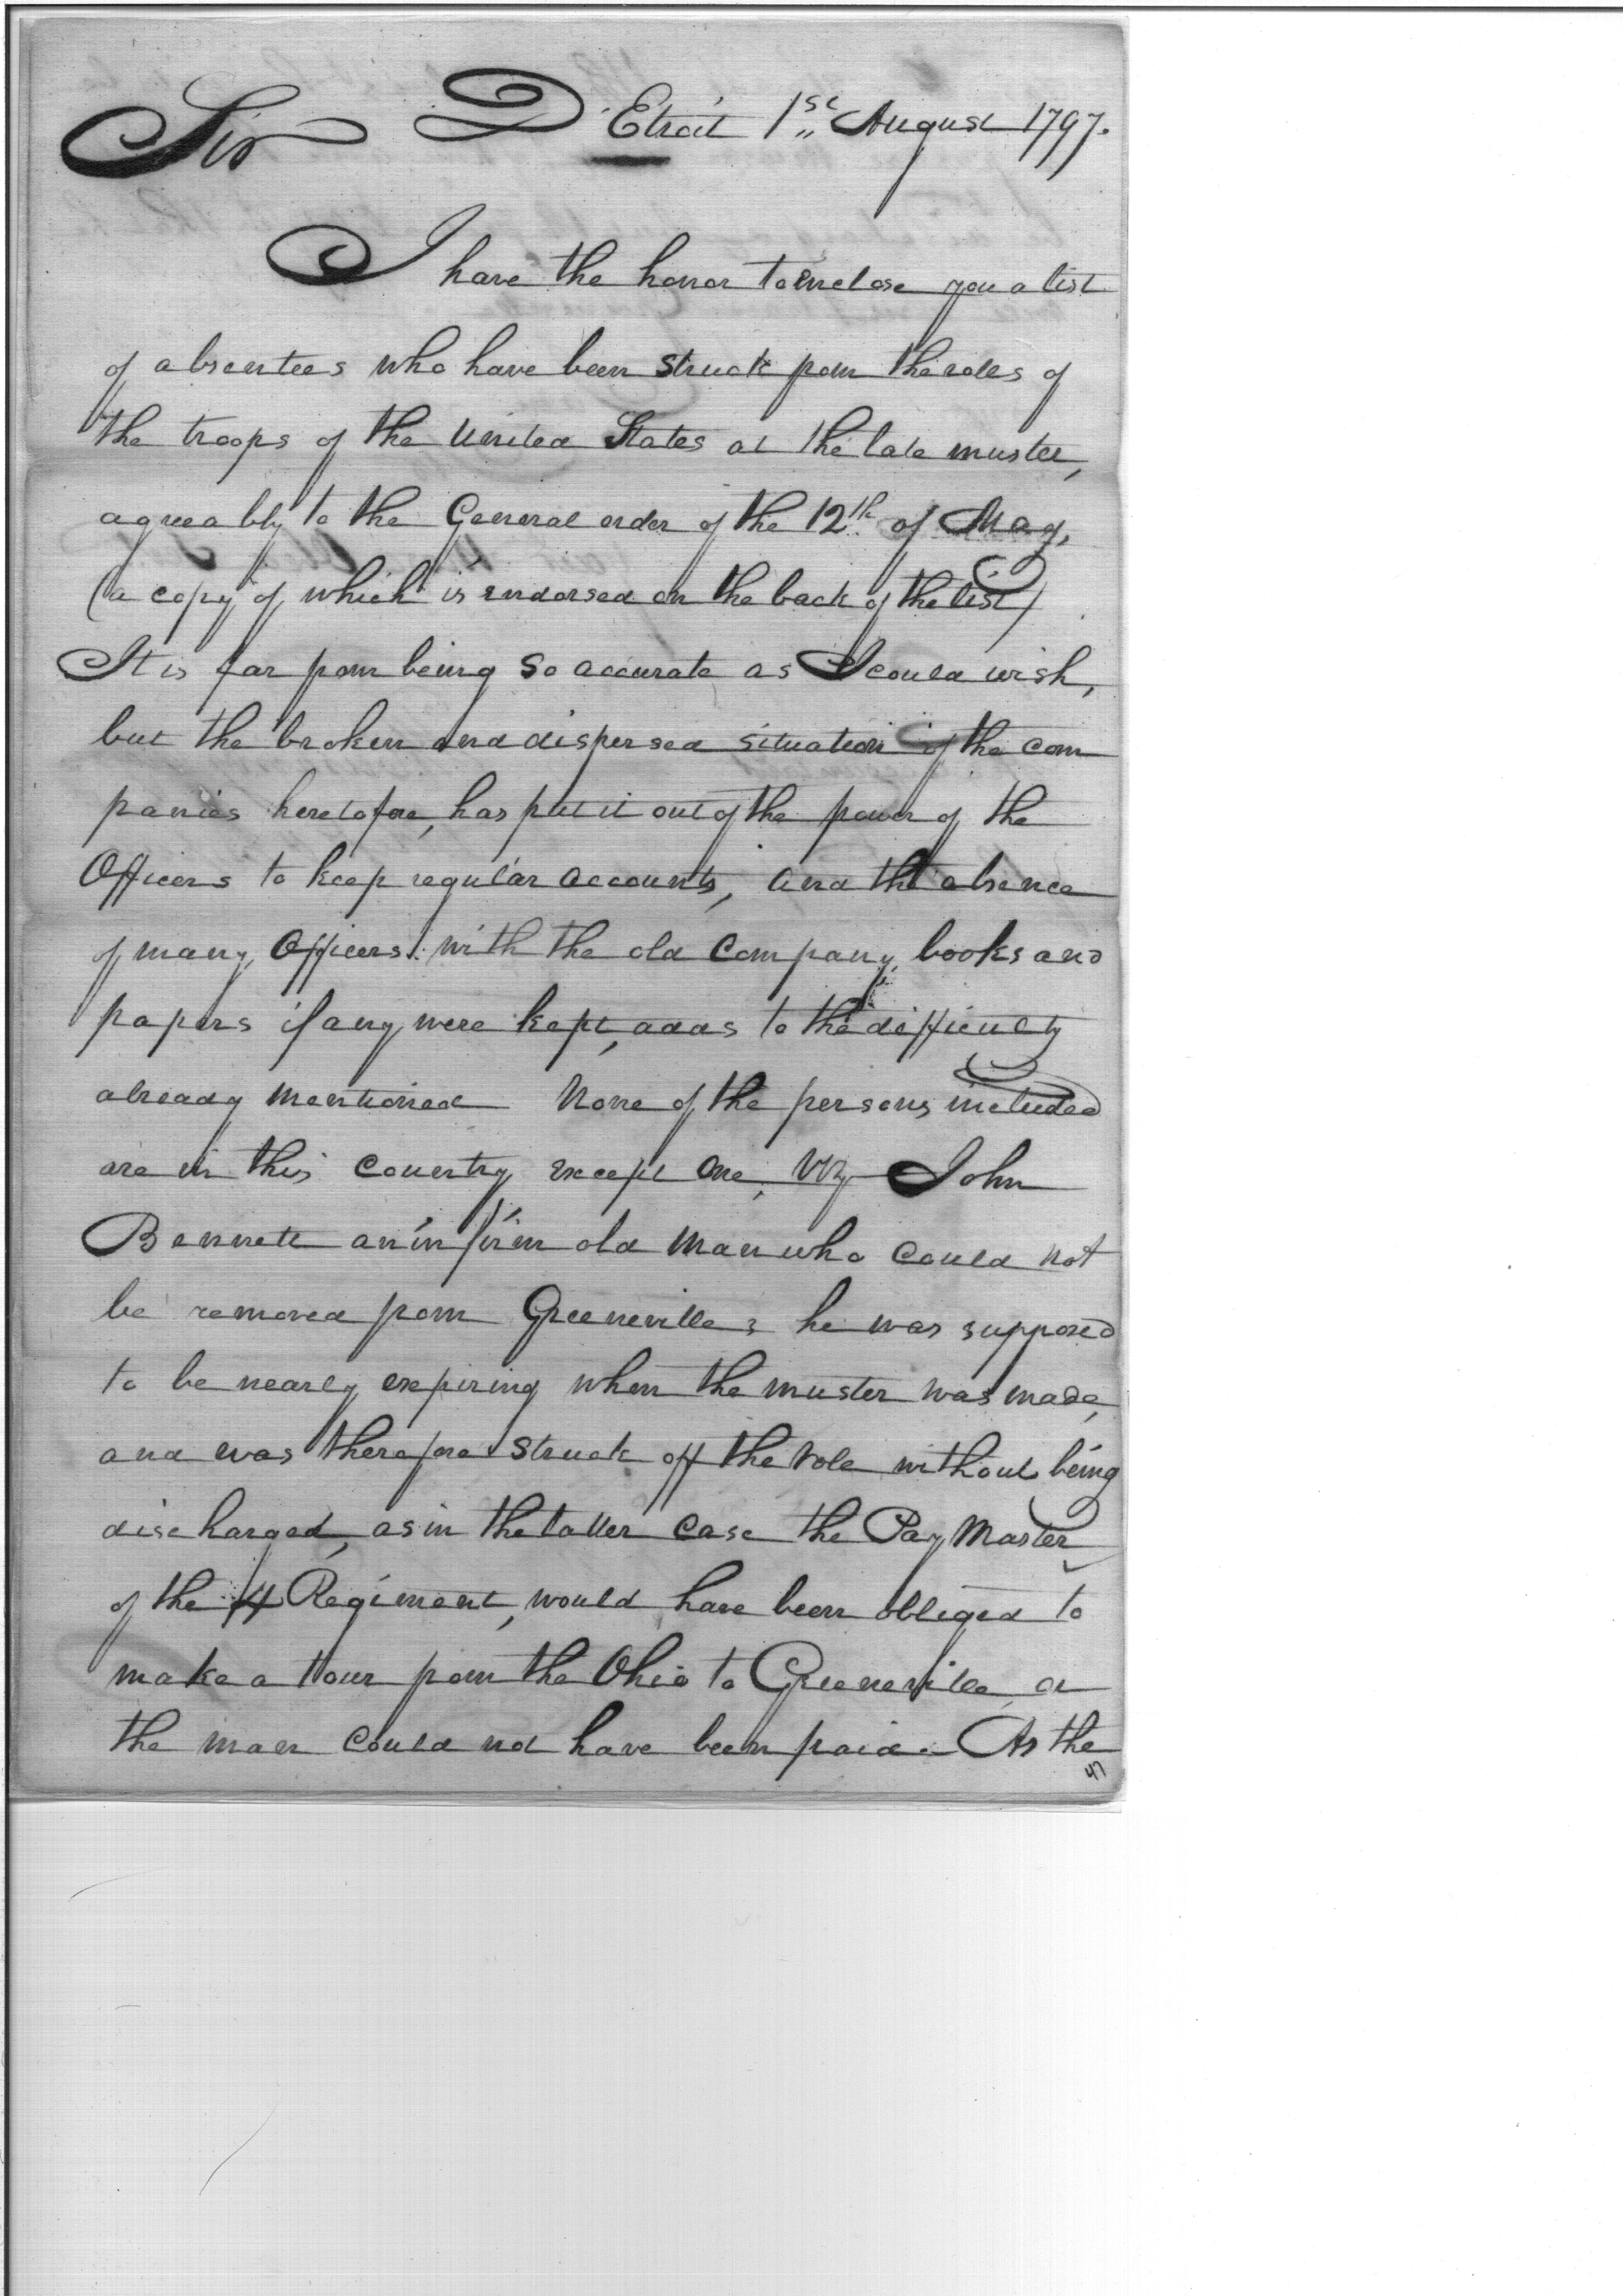 Sir D'Etroit 1st August 1797.
I have the honor to enclose you a list
of absentees who have been struck from the roles of
the troops of the United States at the late muster,
agreeably to the General order of the 12th of May,
(a copy of which is endorsed on the back of the list)
It is far from being so accurate as I could wish,
but the broken and dispersed situation of the com
panies heretofore, has put it out of the power of the
Officers to keep regular accounts, and the absence
of many Officers with the old Company books and
papers if any were kept, adds to the difficulty
already mentioned None of the persons included
are in this Country except one, Viz John
Bennett an infirm old man who could not
be removed from Greeneville; he was supposed
to be nearly expiring when the muster was made,
and was therefore struck off the role without being
discharged, as in the latter case the Pay Master
of the 4 Regiment, would have been obliged to
make a tour from the Ohio to Greeneville or
the man could not have been paid. As the
47